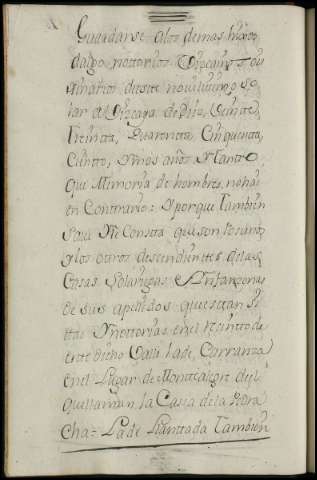 Guardarse alos demas hijos
dalgo nottorios, Vizcainos Tou
ginarios de este noviliss.mo So
lar de Vizcaya de Diez, Veinte,
Treinta, Quarenta Cinquenta,
Ciento, y mas años y Tanto
que Memoria de hombres, no hai
en Contrario: Y porque Tambien
save Me Consta que son los unos
y los otros descendientes de las
Casas, Solariegas e Infanzonas
de sus apellidos que estan si
ttas y nottorias en el Recintto de
este dicho Valle de Carranza
en el Lugar de Montealegre del
que llaman la Casa de la Pedra
cha= La de Llanttada Tambien